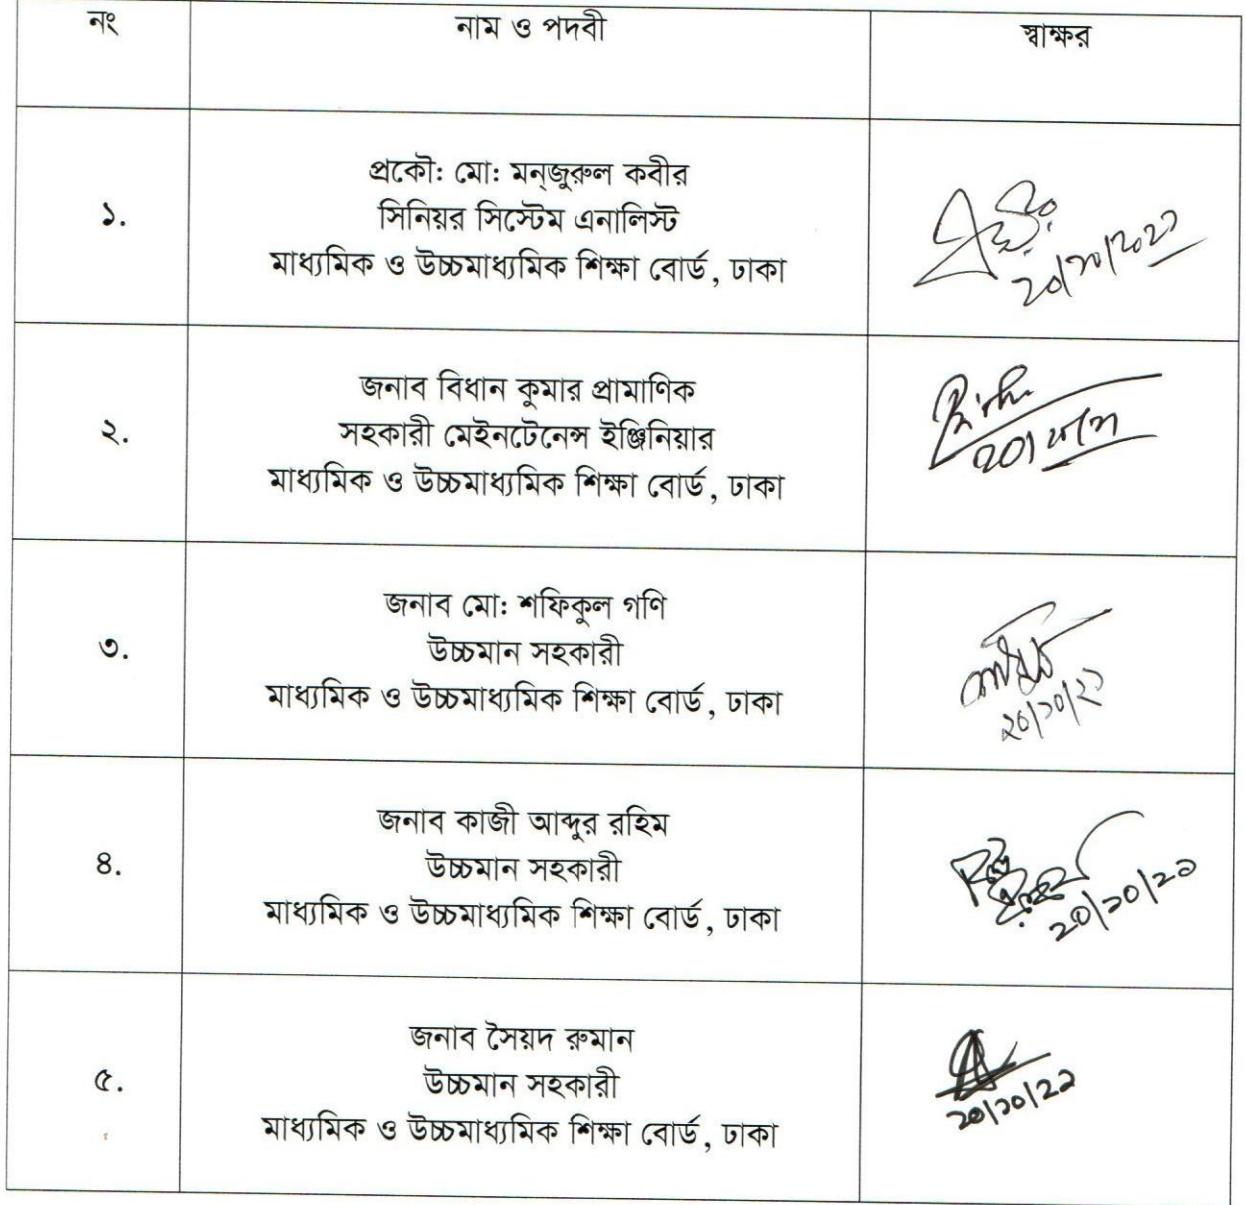 নং নাম ও পদবী স্বাক্ষর
প্রকৌ: মো: মন্‌জুরুল কবীর
১. সিনিয়র সিস্টেম এনালিস্ট
মাধ্যমিক ও উচ্চমাধ্যমিক শিক্ষা বোর্ড, ঢাকা
২০/১০/২০২১
জনাব বিধান কুমার প্রামাণিক
২. সহকারী মেইনটেনেন্স ইঞ্জিনিয়ার
মাধ্যমিক ও উচ্চমাধ্যমিক শিক্ষা বোর্ড, ঢাকা
জনাব মো: শফিকুল গণি
৩. উচ্চমান সহকারী
মাধ্যমিক ও উচ্চমাধ্যমিক শিক্ষা বোর্ড, ঢাকা
২০/১০/২১
জনাব কাজী আব্দুর রহিম
৪. উচ্চমান সহকারী
মাধ্যমিক ও উচ্চমাধ্যমিক শিক্ষা বোর্ড, ঢাকা
২০/১০/২১
জনাব সৈয়দ রুমান
৫. উচ্চমান সহকারী
মাধ্যমিক ও উচ্চমাধ্যমিক শিক্ষা বোর্ড, ঢাকা
২০/১০/২১